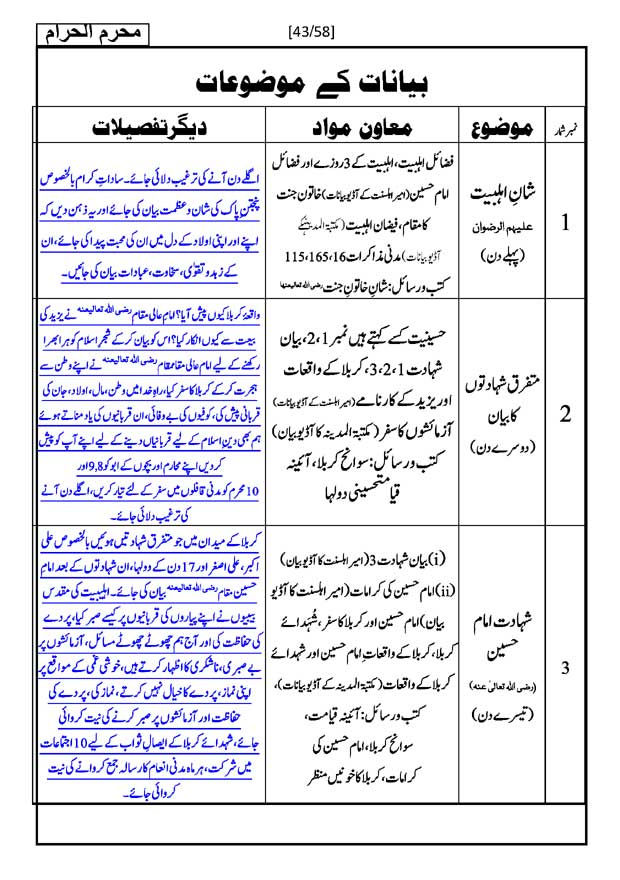 محرم الحرام
[43/58]
بیانات کے موضوعات
نمبر شمار
موضوع
معاون مواد
دیگر تفصیلات
1
شانِ اہلبیت
علیہم الرضوان
(پہلے دن)
فضائل اہلبیت، اہلبیت کے 3 روزے اور فضائل
امام حسین (امیر اہلسنت کے آڈیو بیانات) خاتونِ جنت
کا مقام، فیضانِ اہلبیت (مکتبۃ المدینہ کے
آڈیو بیانات) مدنی مذاکرات 16، 165، 115
کتب و رسائل: شانِ خاتونِ جنت رضی اللہ تعالیٰ عنہا
اگلے دن آنے کی ترغیب دلائی جائے۔ ساداتِ کرام بالخصوص
پنجتن پاک کی شان و عظمت بیان کی جائے اور یہ ذہن دیں کہ
اپنے اور اپنی اولاد کے دل میں ان کی محبت پیدا کی جائے، ان
کے زہد و تقوٰی، سخاوت، عبادات بیان کی جائیں۔
2
متفرق شہادتوں
کا بیان
(دوسرے دن)
حسینیت کسے کہتے ہیں نمبر 1، 2، بیان
شہادت 1، 2، 3، کربلا کے واقعات
اور یزید کے کارنامے (امیر اہلسنت کے آڈیو بیانات)
آزمائشوں کا سفر (مکتبۃ المدینہ کا آڈیو بیان)
کتب و رسائل: سوانح کربلا، آئینہ
قیامت، حسینی دولہا
واقعۂ کربلا کیوں پیش آیا؟ امامِ عالی مقام رضی اللہ تعالیٰ عنہ نے یزید کی
بیعت سے کیوں انکار کیا؟ اس کو بیان کر کے شجرِ اسلام کو ہرا بھرا
رکھنے کے لیے امام عالی مقام رضی اللہ تعالیٰ عنہ نے اپنے وطن سے
ہجرت کر کے کربلا کا سفر کیا، راہِ خدا میں وطن، مال، اولاد، جان کی
قربانی پیش کی، کوفیوں کی بے وفائی، ان قربانیوں کی یاد مناتے ہوئے
ہم بھی دینِ اسلام کے لیے قربانیاں دینے کے لیے اپنے آپ کو پیش
کر دیں اپنے محارم اور بچوں کے ابو کو 8،9 اور
10 محرم کو مدنی قافلوں میں سفر کے لئے تیار کریں، اگلے دن آنے
کی ترغیب دلائی جائے۔
3
شہادت امام
حسین
(رضی اللہ تعالیٰ عنہ)
(تیسرے دن)
(i) بیانِ شہادت 3 (امیر اہلسنت کا آڈیو بیان)
(ii) امام حسین کی کرامات (امیر اہلسنت کا آڈیو
بیان) امام حسین اور کربلا کا سفر، شُہَدائے
کربلا، کربلا کے واقعات امام حسین اور شہدائے
کربلا کے واقعات (مکتبۃ المدینہ کے آڈیو بیانات)،
کتب و رسائل: آئینہ قیامت،
سوانح کربلا، امام حسین کی
کرامات، کربلا کا خونیں منظر
کربلا کے میدان میں جو متفرق شہادتیں ہوئیں بالخصوص علی
اکبر، علی اصغر اور 17 دن کے دولہا، ان شہادتوں کے بعد امام
حسین مقام رضی اللہ تعالیٰ عنہ بیان کی جائے۔ اہلبیت کی مقدس
بیبیوں نے اپنے پیاروں کی قربانیوں پر کیسے صبر کیا، پردے
کی حفاظت کی اور آج ہم چھوٹے چھوٹے مسائل، آزمائشوں پر
بے صبری، ناشکری کا اظہار کرتے ہیں، خوشی غمی کے مواقع پر
اپنی نماز، پردے کا خیال نہیں کرتے، نماز کی، پردے کی
حفاظت اور آزمائشوں پر صبر کرنے کی نیت کروائی
جائے، شہدائے کربلا کے ایصالِ ثواب کے لیے 10 اجتماعات
میں شرکت، ہر ماہ مدنی انعام کا رسالہ جمع کروانے کی نیت
کروائی جائے۔